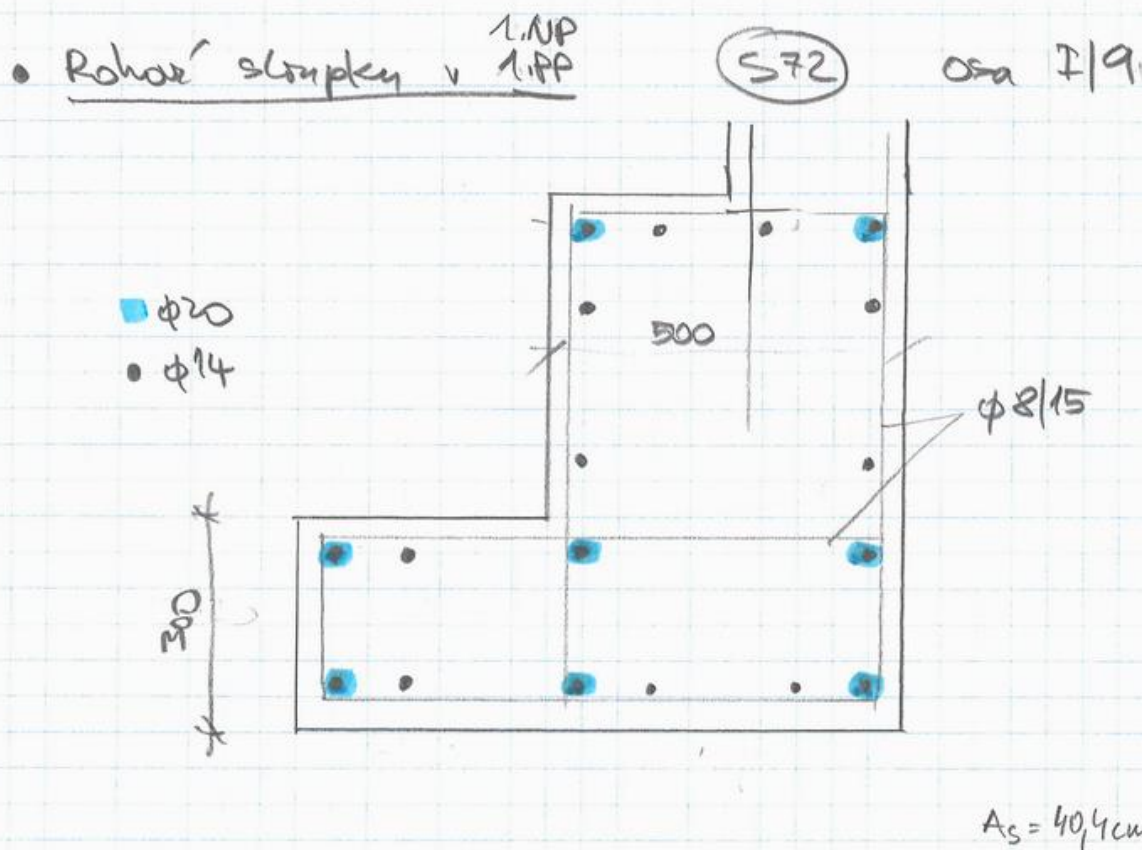 • Rohové sloupky v 1.NP
1.PP
S72
osa I/9.
φ20
φ14
500
φ8/15
300
As = 40,4 cm